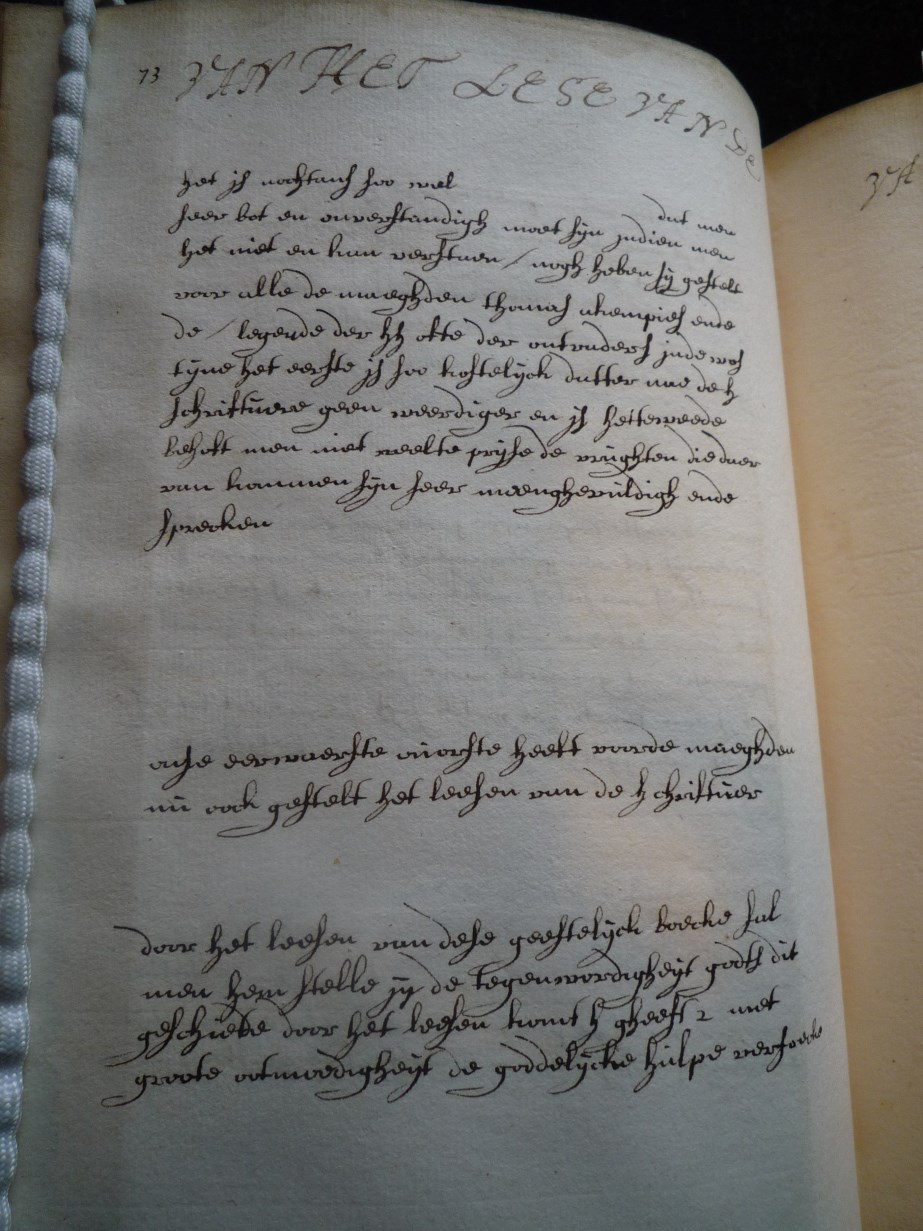 73 VAN HET LESE VAN DE
het js nochtans soo wel dat men
seer bot en onverstandigh moet syn jndien men
het niet en kan verstaen / nogh heben sÿ gestelt
voor alle de maeghden thomas akempies ende
de / legende der hh ofte der outvaders
tyne het eerste js soo kostelyck datter nae de h
schriftuere geen weerdiger en js het tweede
behoft men niet veel te pryse de vrughten die daer
van kommen syn seer meenghevuldigh ende
spreeken
onse eerwaerste ouerste heeft voor de maeghden
nu oock gestelt het leesen van de h schriftuer
door het leesen van dese geestelyck boecke sal
men hem stelle jn de tegenwordigheyt godts dit
geschiede door het leesen komt h gheest met
groote ootmoedigheyt de goddelycke hulpe versoecke
VA